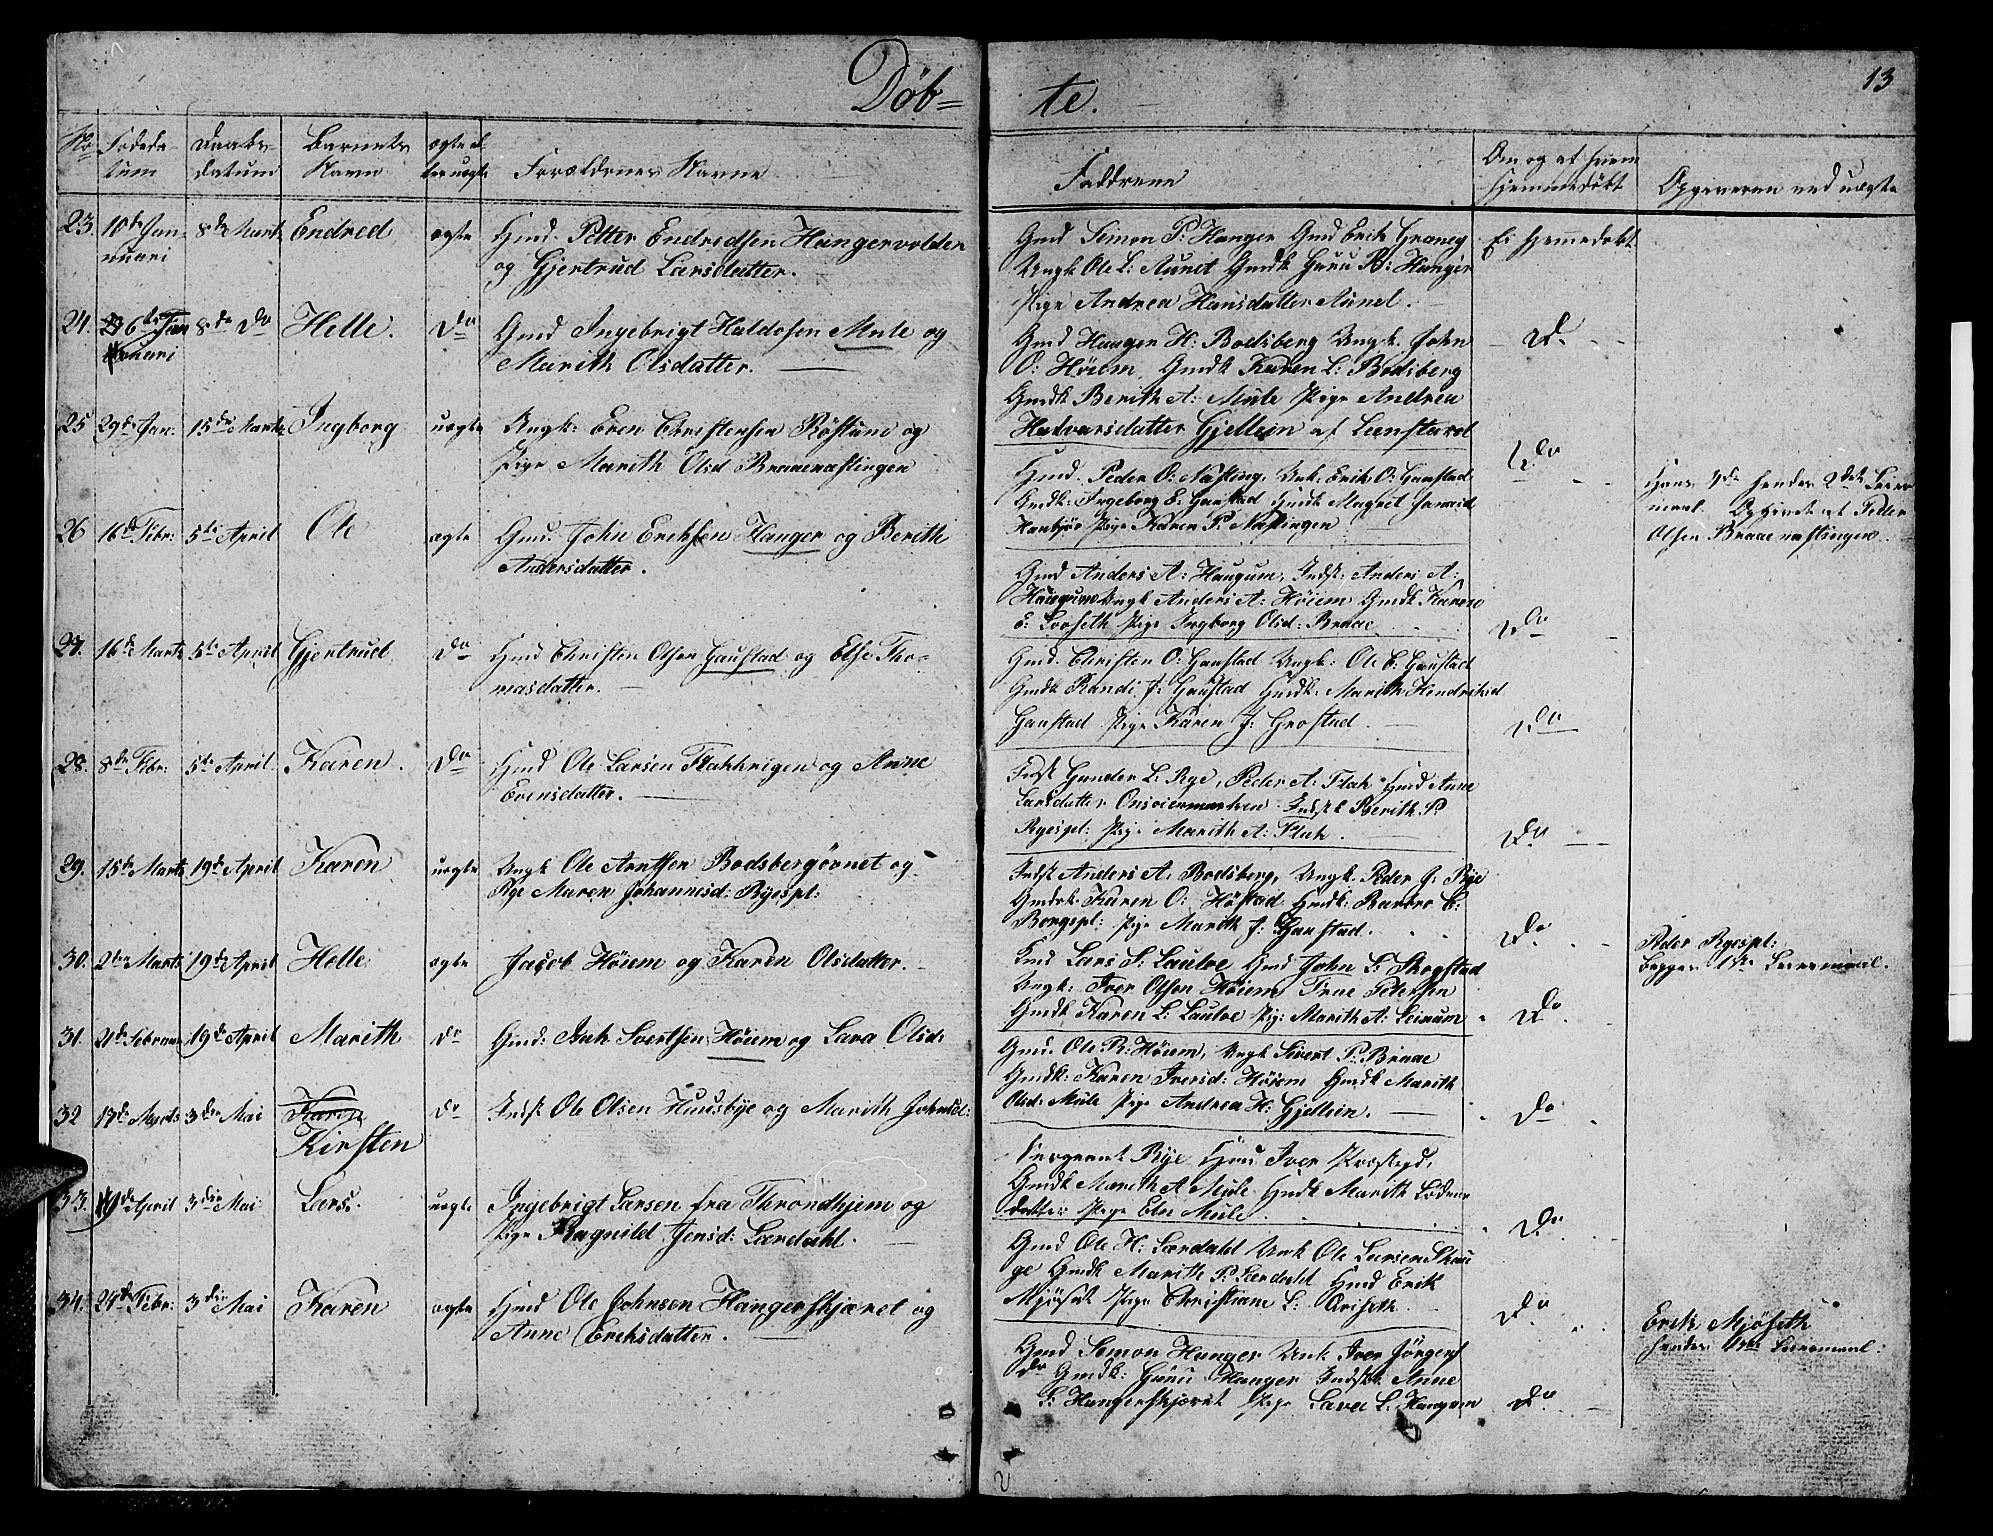 Døb=
te.
13
No
Fødeda-
tum
Daabs-
datum
Barnets
Navn
ægte el.
uægte
Forældrenes Navne
Faddrene
Om og af hvem
hjemmedøbt
Opgiveren ved uægte
23. 10de Jan- 8de Marts Endred ægte Hmd. Petter Endredsen Haugervolden
nuari og Gjertrud Larsdatter.
Gmd Simon P: Hanger Gmd Erik
Ungk Ole L: Aunet Gmdk Guru P: Hanger
Pige Andrea Hansdatter Aunet.
Ei hjemmedøbt
24. 6te Jan 8de Do Helle. Do Gmd Ingebrigt Haldosen Mule og
nuari Marith Olsdatter.
Gmd Haagen H: Bodsberg Ungk. John
O: Höiem Gmdk Karen L: Bodsberg
Gmdk Berith A: Mule Pige Andrea
Halvarsdatter Gjellein af
Do
25 29de Jan: 15de Marts Ingborg uægte Ungk: Even Christensen Röstum og
Pige Marith Olsd Braaenæstingen
Hmd. Peder O: Næsting, Unk: Erik O: Gaustad
Gmdk: Ingeborg E: Gaustad Hmdk Magret
Pige Karen P: Næstingen
Do
Hans 1de hendes 2det Leier
maal. Opgivet af Peder
Olsen Braaenæstingen.
26 16de Febr: 5te April Ole ægte Gmd. John Eriksen Hanger og Berith
Andersdatter.
Gmd Anders A: Haugum, Indst: Anders A:
Haugum Ungk Anders A: Höiem Gmdk Karen
E: Looseth Pige Ingborg Olsd: Braae
Do
27. 16de Marts 5te April Gjertrud Do Hmd Christen Olsen Gaustad og Else Tho-
masdatter.
Gmd. Christen O: Gaustad Ungk: Ole C: Gaustad
Gmdk Randi J: Gaustad Hmdk: Marith Hendriksd
Gaustad Pige Karen J: Grostad.
Do
28. 8de Febr: 5te April. Karen. Do Hmd Ole Larsen Flakkrigen og Anne
Evensdatter.
Indst Gunder L: Rye, Peder A: Flak Hmd Anne
Larsdatter Onsöiermarken Indst Berith P
Ryespl: Pige Marith A: Flak.
Do
29. 15de Marts 19de April Karen uægte Ungk Ole Arntsen Bodsbergövnet og
Pige Maren Johannesd: Ryespl:
Indst Anders A. Bodsberg, Ungk. Peder J: Rye
Gmdk: Karen O: Höstad Hmdk: Barbro C:
Borgspl: Pige Marith J: Gaustad.
Do
Peder Ryespl:
begges 1ste Leiermaal.
30. 2den Marts 19de April Helle ægte Jacob Höiem og Karen Olsdatter.
Hmd Lars S: Laulve Gmd John L: Skogstad
Ungk: Iver Olsen Höiem True Petersen
Gmdk Karen L: Laulve Pige: Marith A: Leinum
Do
31. 21de Februar 19de April Marith Do Gmd: Isak Svertsen Höiem og Lava Olsd:
Gmd. Ole R: Höiem, Ungk Sivert P: Braae
Gmdk: Karen Iversd: Höiem Gmdk Marith
Olsd: Mule Pige Andrea H: Gjellein.
Do
32 17de Marts 3die Mai Karen Do Indst Ole Olsen Huusbye og Marith Johnsd:
Kirsten
Sergeant Rye Hmd Iver
Gmdk Marith A Mule Hmdk Marith
datter Pige Elen Mule.
Do
33. 19de April 3die Mai Lars. uægte Ingebrigt Larsen fra Throndhjem og
Pige Ragnild Jensd: Lærdahl.
Gmd Ole H: Lærdahl Unk Ole Larsen Skau
ge Gmdk Marith P: Lærdahl Hmd Erik
Mjöset Pige Christiane L:
Do
Erik Mjöseth
hendes 1ste Leiermaal:
34. 24de Febr: 3die Mai Karen ægte Hmd Ole Johnsen Hangerskjæret og
Anne Ereksdatter.
Gmd Semon Hanger Unk Iver Jörgens
Do Gmdk: Guru Hanger Indst: Anne
S: Hangerskjæret Pige Lava L: Haugum
Do